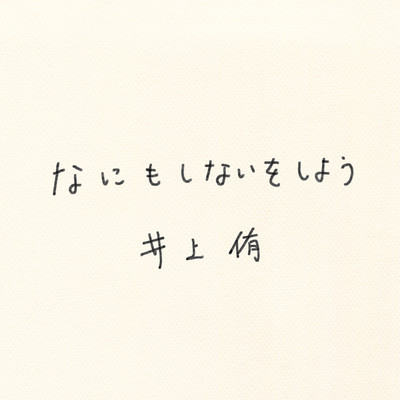 なにもしないをしよう
井上侑